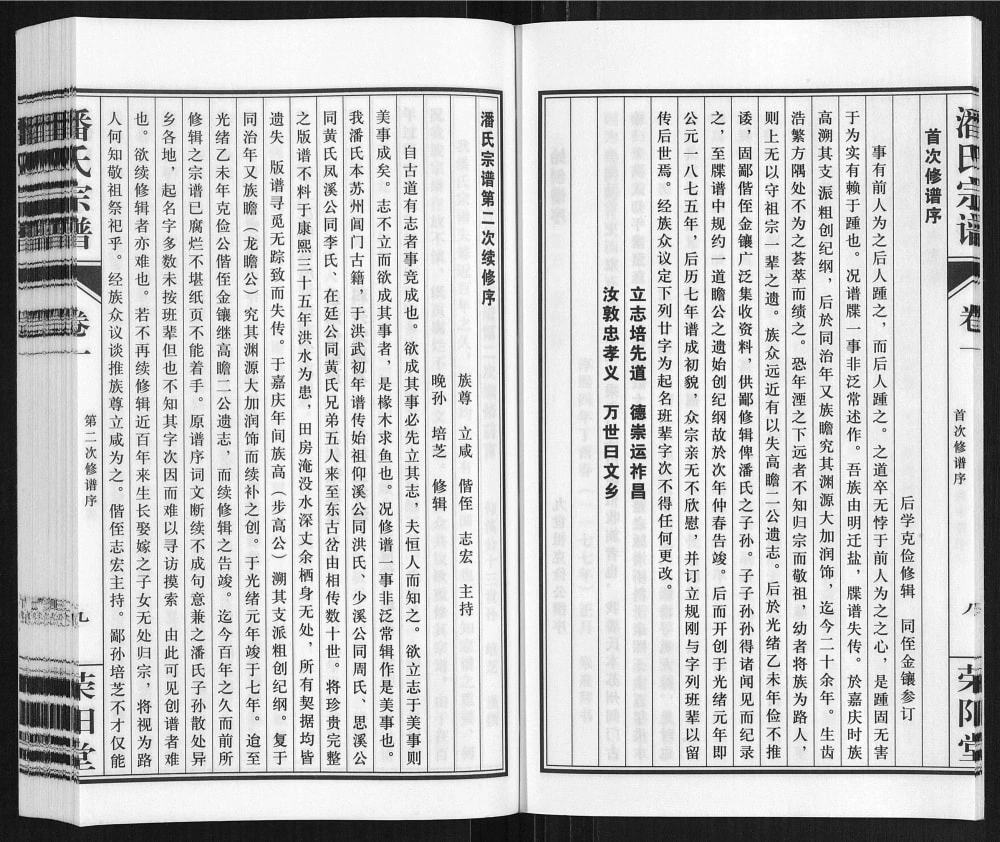 潘氏宗谱
卷一
首次修谱序
八
荣阳堂
首次修谱序
后学克俭修辑 同侄金镶参订
事有前人为之后人踵之，而后人踵之。之道卒无悖于前人为之之心，是踵固无害
于为实有赖于踵也。况谱牒一事非泛常述作。吾族由明迁盐，牒谱失传。於嘉庆时族
高溯其支派粗创纪纲，后於同治年又族瞻究其渊源大加润饰，迄今二十余年。生齿
浩繁方隅处不为之荟萃而绩之。恐年湮之下远者不知归宗而敬祖，幼者将族为路人，
则上无以守祖宗一辈之遗。族众远近有以失高瞻二公遗志。后於光绪乙未年俭不推
诿，固鄙偕侄金镶广泛集收资料，供鄙修辑俾潘氏之子孙。子子孙孙得诸闻见而纪录
之，至牒谱中规约一道瞻公之遗始创纪纲故於次年仲春告竣。后而开创于光绪元年即
公元一八七五年，后历七年谱成初貌，众宗亲无不欣慰，并订立规刚与字列班辈以留
传后世焉。经族众议定下列廿字为起名班辈字次不得任何更改。
立志培先道 德崇运祚昌
汝敦忠孝义 万世曰文乡
潘氏宗谱第二次续修序
族尊 立咸 偕侄 志宏 主持
晚孙 培芝 修辑
自古道有志者事竟成也。欲成其事必先立其志，夫恒人而知之。欲立志于美事则
美事成矣。志不立而欲成其事者，是椽木求鱼也。况修谱一事非泛常辑作是美事也。
我潘氏本苏州阊门古籍，于洪武初年谱传始祖仰溪公同洪氏、少溪公同周氏、思溪公
同黄氏凤溪公同李氏、在廷公同黄氏兄弟五人来至东古岔由相传数十世。将珍贵完整
之版谱不料于康熙三十五年洪水为患，田房淹没水深丈余栖身无处，所有契据均皆
遗失 版谱寻觅无踪致而失传。于嘉庆年间族高（步高公）溯其支派粗创纪纲。复于
同治年又族瞻（龙瞻公）究其渊源大加润饰而续补之创。于光绪元年竣于七年。迨至
光绪乙未年克俭公偕侄金镶继高瞻二公遗志，而续修辑之告竣。迄今百年之久而前所
修辑之宗谱已腐烂不堪纸页不能着手。原谱序词文断续不成句意兼之潘氏子孙散处异
乡各地，起名字多数未按班辈但也不知其字次因而难以寻访摸索 由此可见创谱者难
也。欲续修辑者亦难也。若不再续修辑近百年来生长娶嫁之子女无处归宗，将视为路
人何知敬祖祭祀乎。经族众议谈推族尊立咸为之。偕侄志宏主持。鄙孙培芝不才仅能
潘氏宗谱
卷一
第二次修谱序
九
荣阳堂